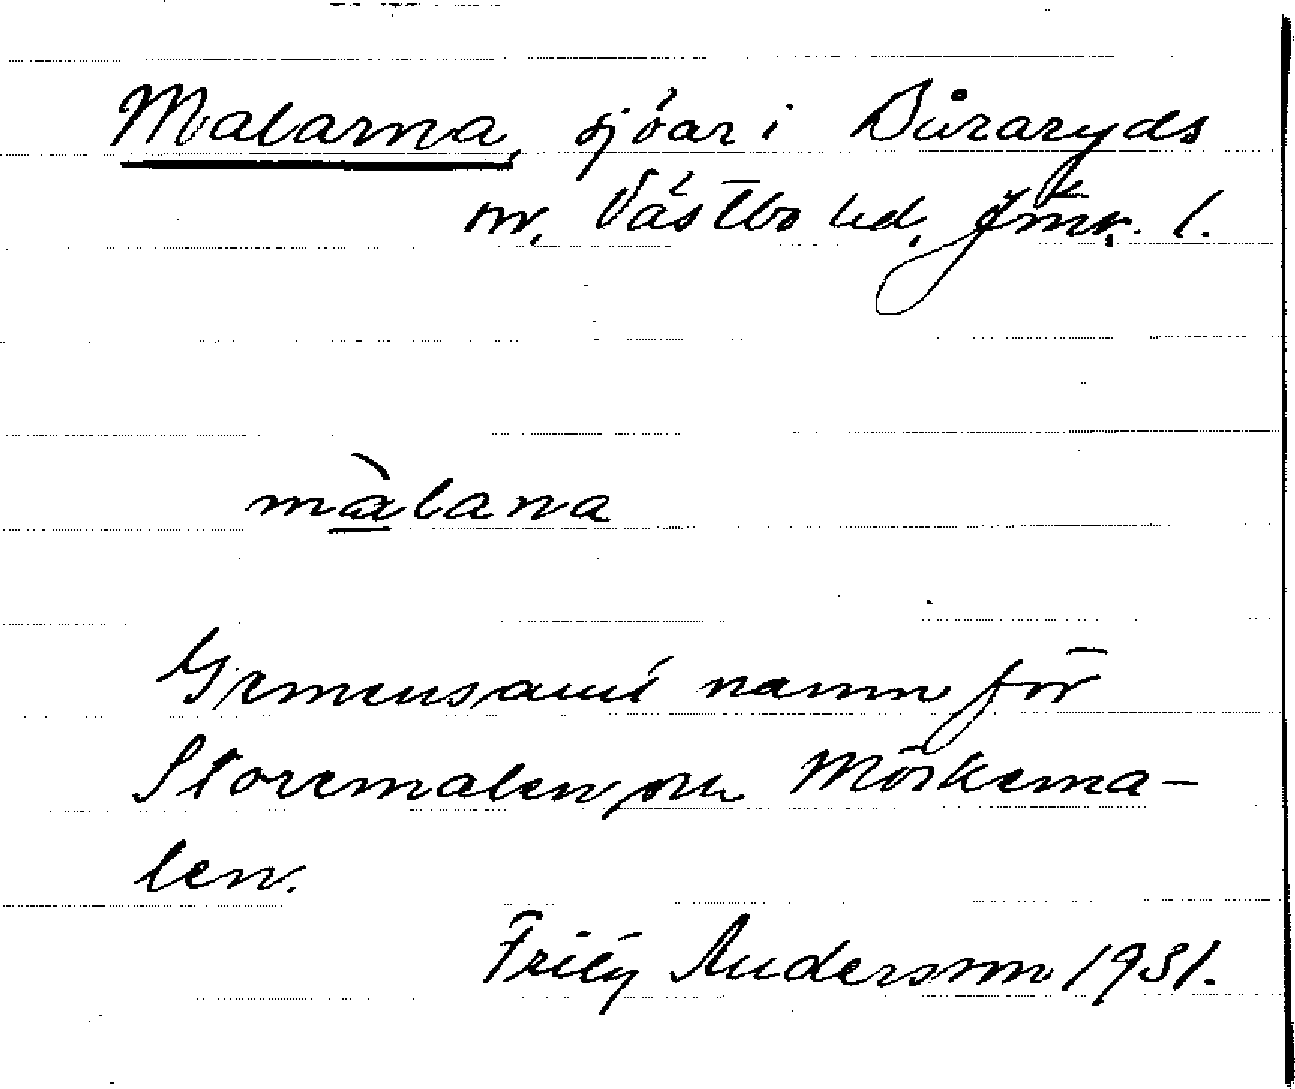 Malarna, sjöar i Båraryds
sn, Västbo hd, Jmk. l.
màlana
Gemensamt namn för
Storemalen och Mörkema-
len.
Fritz Andersson 1931.